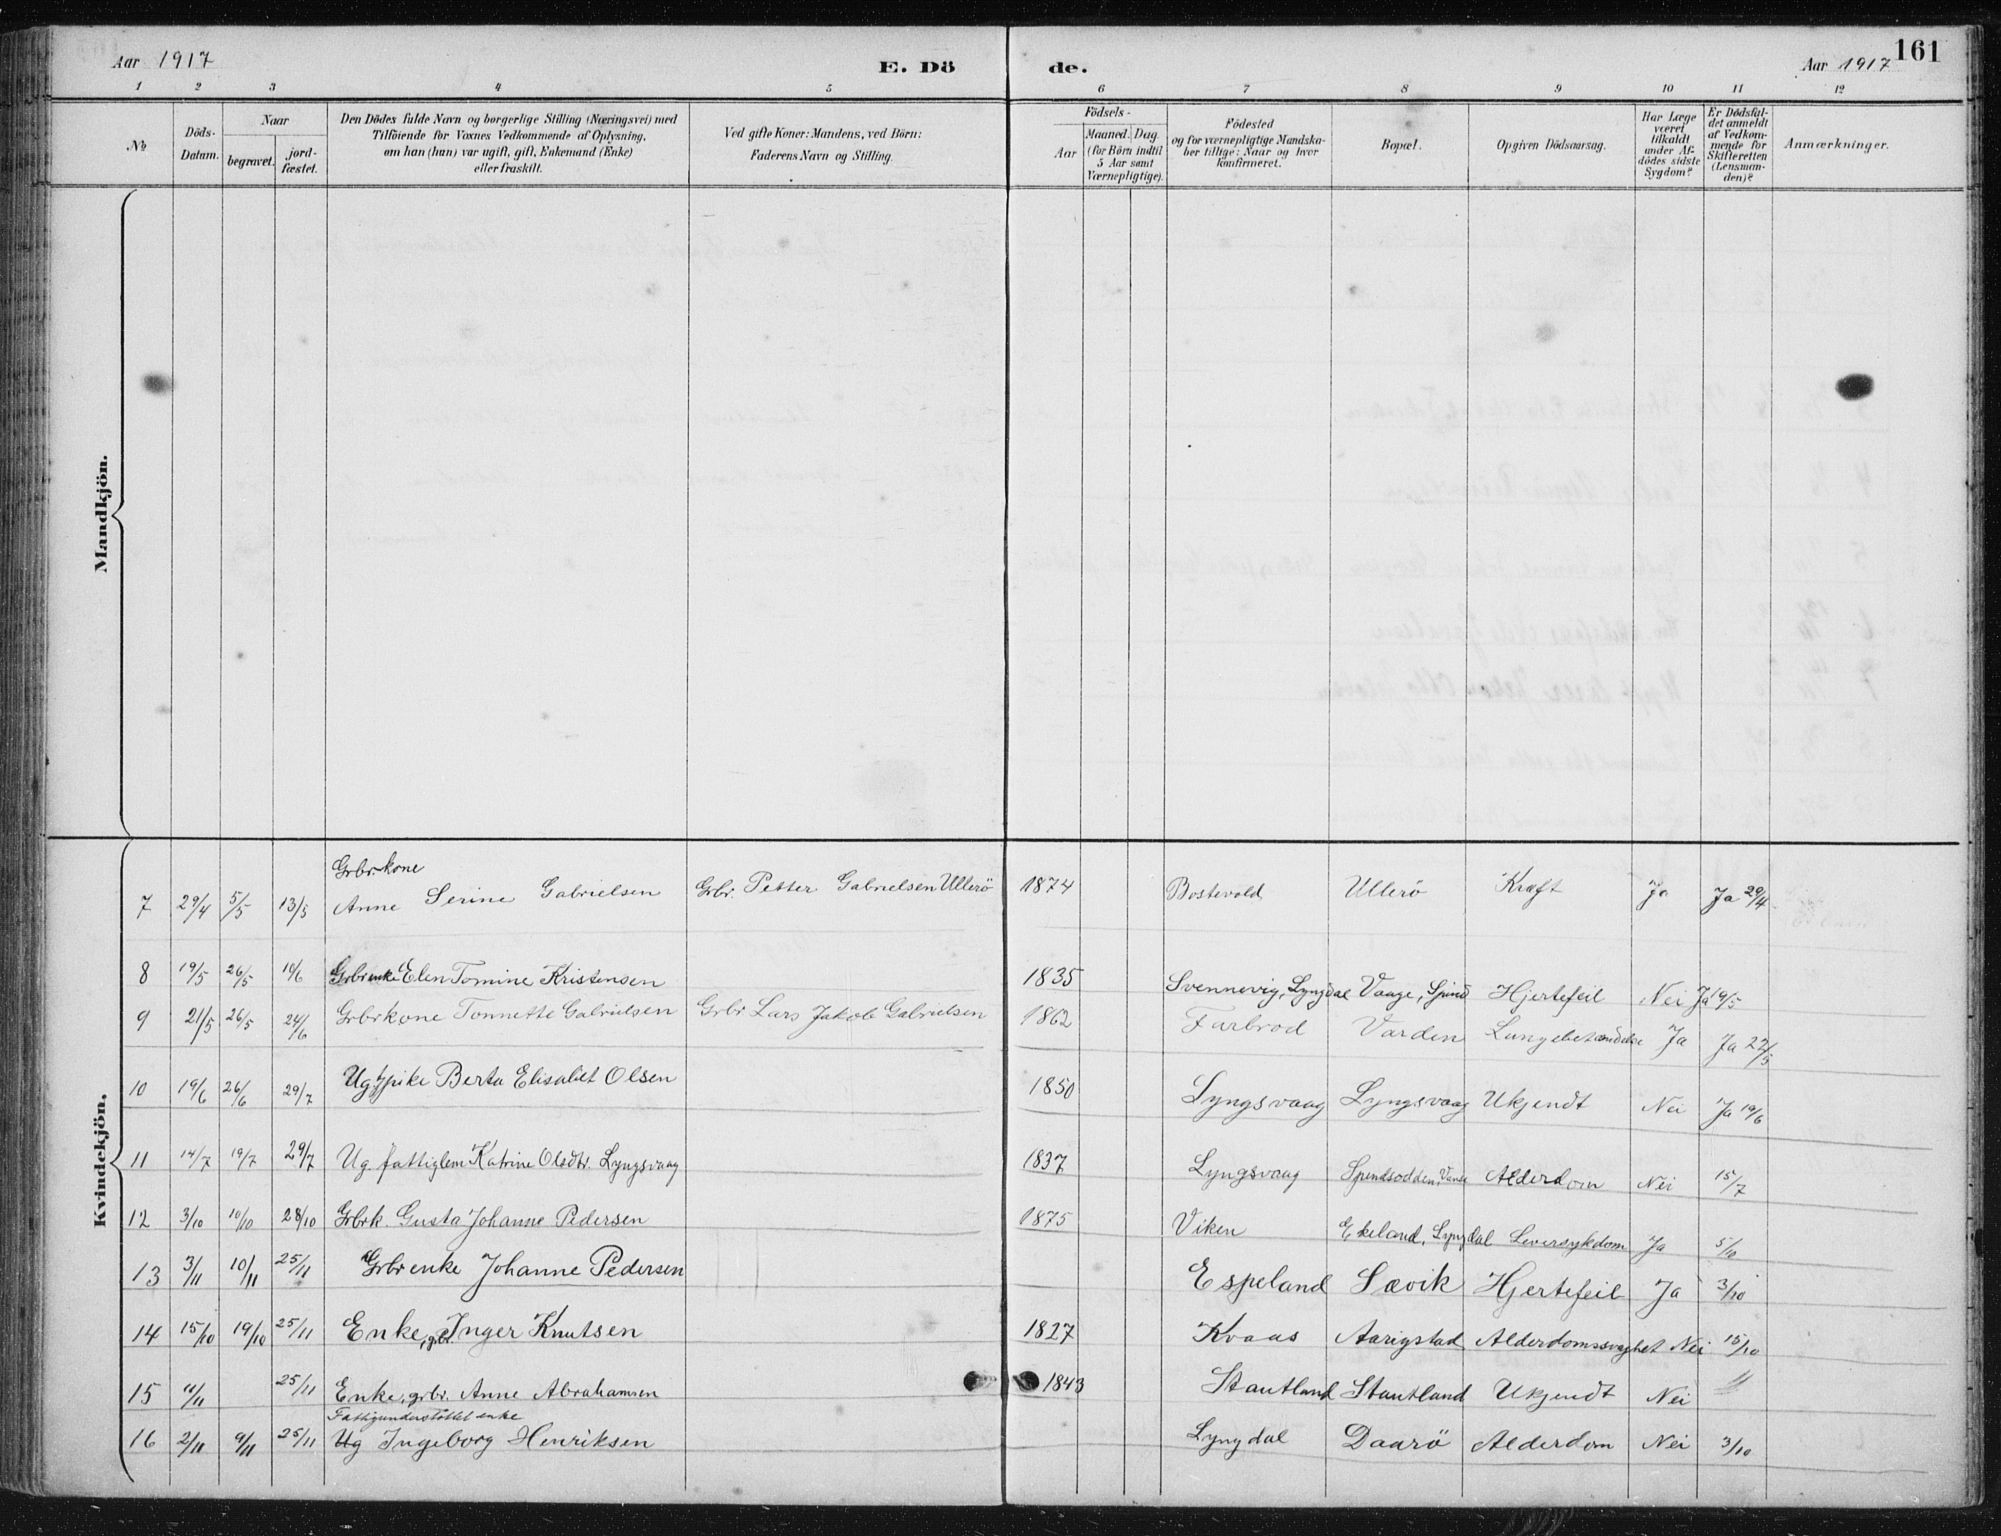 Aar 1917 E. Dö de. Aar 1917 161
1 2 3 4 5 6 7 8 9 10 11 12
№
Döds-Datum.
Naar
begravet.
jord-fæstet.
Den Dödes fulde Navn og borgerlige Stilling (Næringsvei) med
Tilföiende for Voxnes Vedkommende af Oplysning,
om han (hun) var ugift, gift, Enkemand (Enke)
eller fraskilt.
Ved gifte Koner: Mandens, ved Börn:
Faderens Navn og Stilling.
Födsels-
Aar
Maaned. Dag.
(for Börn indtil
5 Aar samt
Værnepligtige).
Födested
og for værnepligtige Mandska-
ber tillige: Naar og hvor
konfirmeret.
Bopæl.
Opgiven Dödsaarsag.
Har Læge
været
tilkaldt
under Af-
dödes sidste
Sygdom?
Er Dödsfal-
det anmeldt
af Vedkom-
mende for
Skifteretten
(Lensman-
den)?
Anmærkninger.
Mandkjön.
Kvindekjön.
Grbr.kone
7 29/4 5/5 13/5 Anne Serine Gabrielsen Grbr. Petter Gabrielsen Ullerö 1874 Bostevold Ullerö Kræft Ja Ja 29/4
8 19/5 26/5 10/6 Grbrenke Elen Tomine Kristensen 1835 Svennevig, Lyngdal Vaage, Spind Hjertefeil Nei Ja 19/5
9 21/5 26/5 24/6 Grbrkone Tonnette Gabrielsen Grbr Lars Jakob Gabrielsen 1862 Farbrod Varden Lungebetændelse Ja Ja 22/5
10 19/6 26/6 29/7 Ug. pike Berta Elisabet Olsen 1850 Lyngsvaag Lyngsvaag Ukjendt Nei Ja 19/6
11 14/7 19/7 29/7 Ug. fattiglem Katrine Olsdtr. Lyngsvaag 1837 Lyngsvaag Spindsodden, Vanse Alderdom Nei 15/7
12 3/10 10/10 28/10 Grbrk. Gusta Johanne Pedersen 1875 Viken Ekeland, Lyngdal Leversykdom Ja 5/10
13 3/11 10/11 25/11 Grbr enke Johanne Pedersen Espeland Sævik Hjertefeil Ja 3/10
14 15/10 19/10 25/11 Enke, grb. Inger Knutsen 1827 Kvaas Aarigstad Alderdomssvaghet Nei 15/10
15 11/11 25/11 Enke, grbr. Anne Abrahamsen 1843 Stautland Stautland Ukjendt Nei
Fattigunderstöttet enke
16 2/11 9/11 25/11 Ug Ingeborg Henriksen Lyngdal Daarö Alderdom Nei 3/10